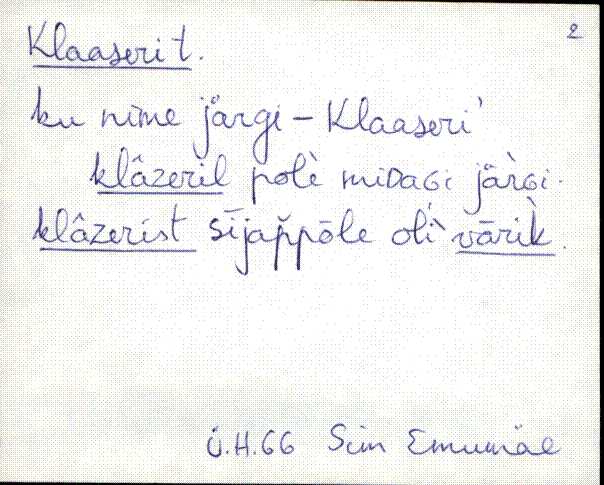 2
Klaaserit.
ku nime järgi – Klaaseri'
klâzeril polè miDaGi järGi.
klâzerist sījap̆pōle olì vārik̀.
Ü.H.66 Sim Emumäe